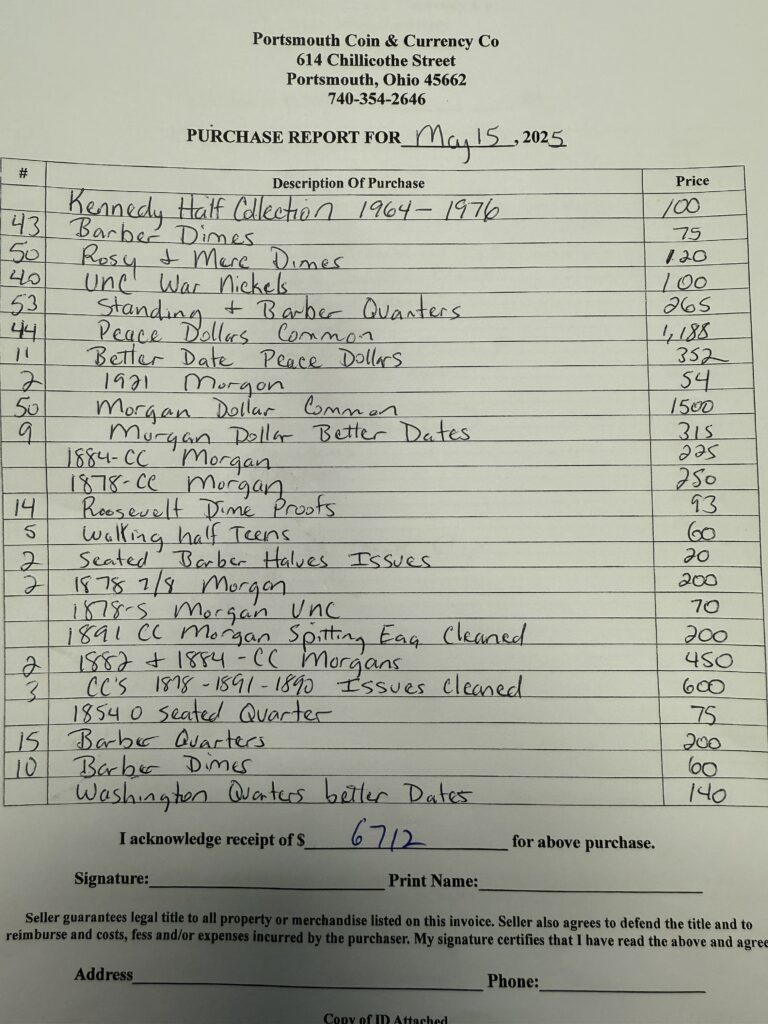 Portsmouth Coin & Currency Co
614 Chillicothe Street
Portsmouth, Ohio 45662
740-354-2646
PURCHASE REPORT FOR May 15, 2025
# Description Of Purchase Price
Kennedy Half Collection 1964-1976 100
43 Barber Dimes 75
50 Rosy + Merc Dimes 120
40 Unc War Nickels 100
53 Standing + Barber Quarters 265
44 Peace Dollars Common 1,188
11 Better Date Peace Dollars 352
2 1921 Morgan 54
50 Morgan Dollar Common 1500
9 Morgan Dollar Better Dates 315
1884-CC Morgan 225
1878-CC Morgan 250
14 Roosevelt Dime Proofs 93
5 Walking half Teens 60
2 Seated Barber Halves Issues 20
2 1878 7/8 Morgan 200
1878-S Morgan Unc 70
1891 CC Morgan Spitting Eag Cleaned 200
2 1882 + 1884-CC Morgans 450
3 CC's 1878-1891-1890 Issues Cleaned 600
1854 O Seated Quarter 75
15 Barber Quarters 200
10 Barber Dimes 60
Washington Quarters better Dates 140
I acknowledge receipt of $ 6712 for above purchase.
Signature: Print Name:
Seller guarantees legal title to all property or merchandise listed on this invoice. Seller also agrees to defend the title and to
reimburse and costs, fess and/or expenses incurred by the purchaser. My signature certifies that I have read the above and agree
Address Phone:
Copy of ID Attached